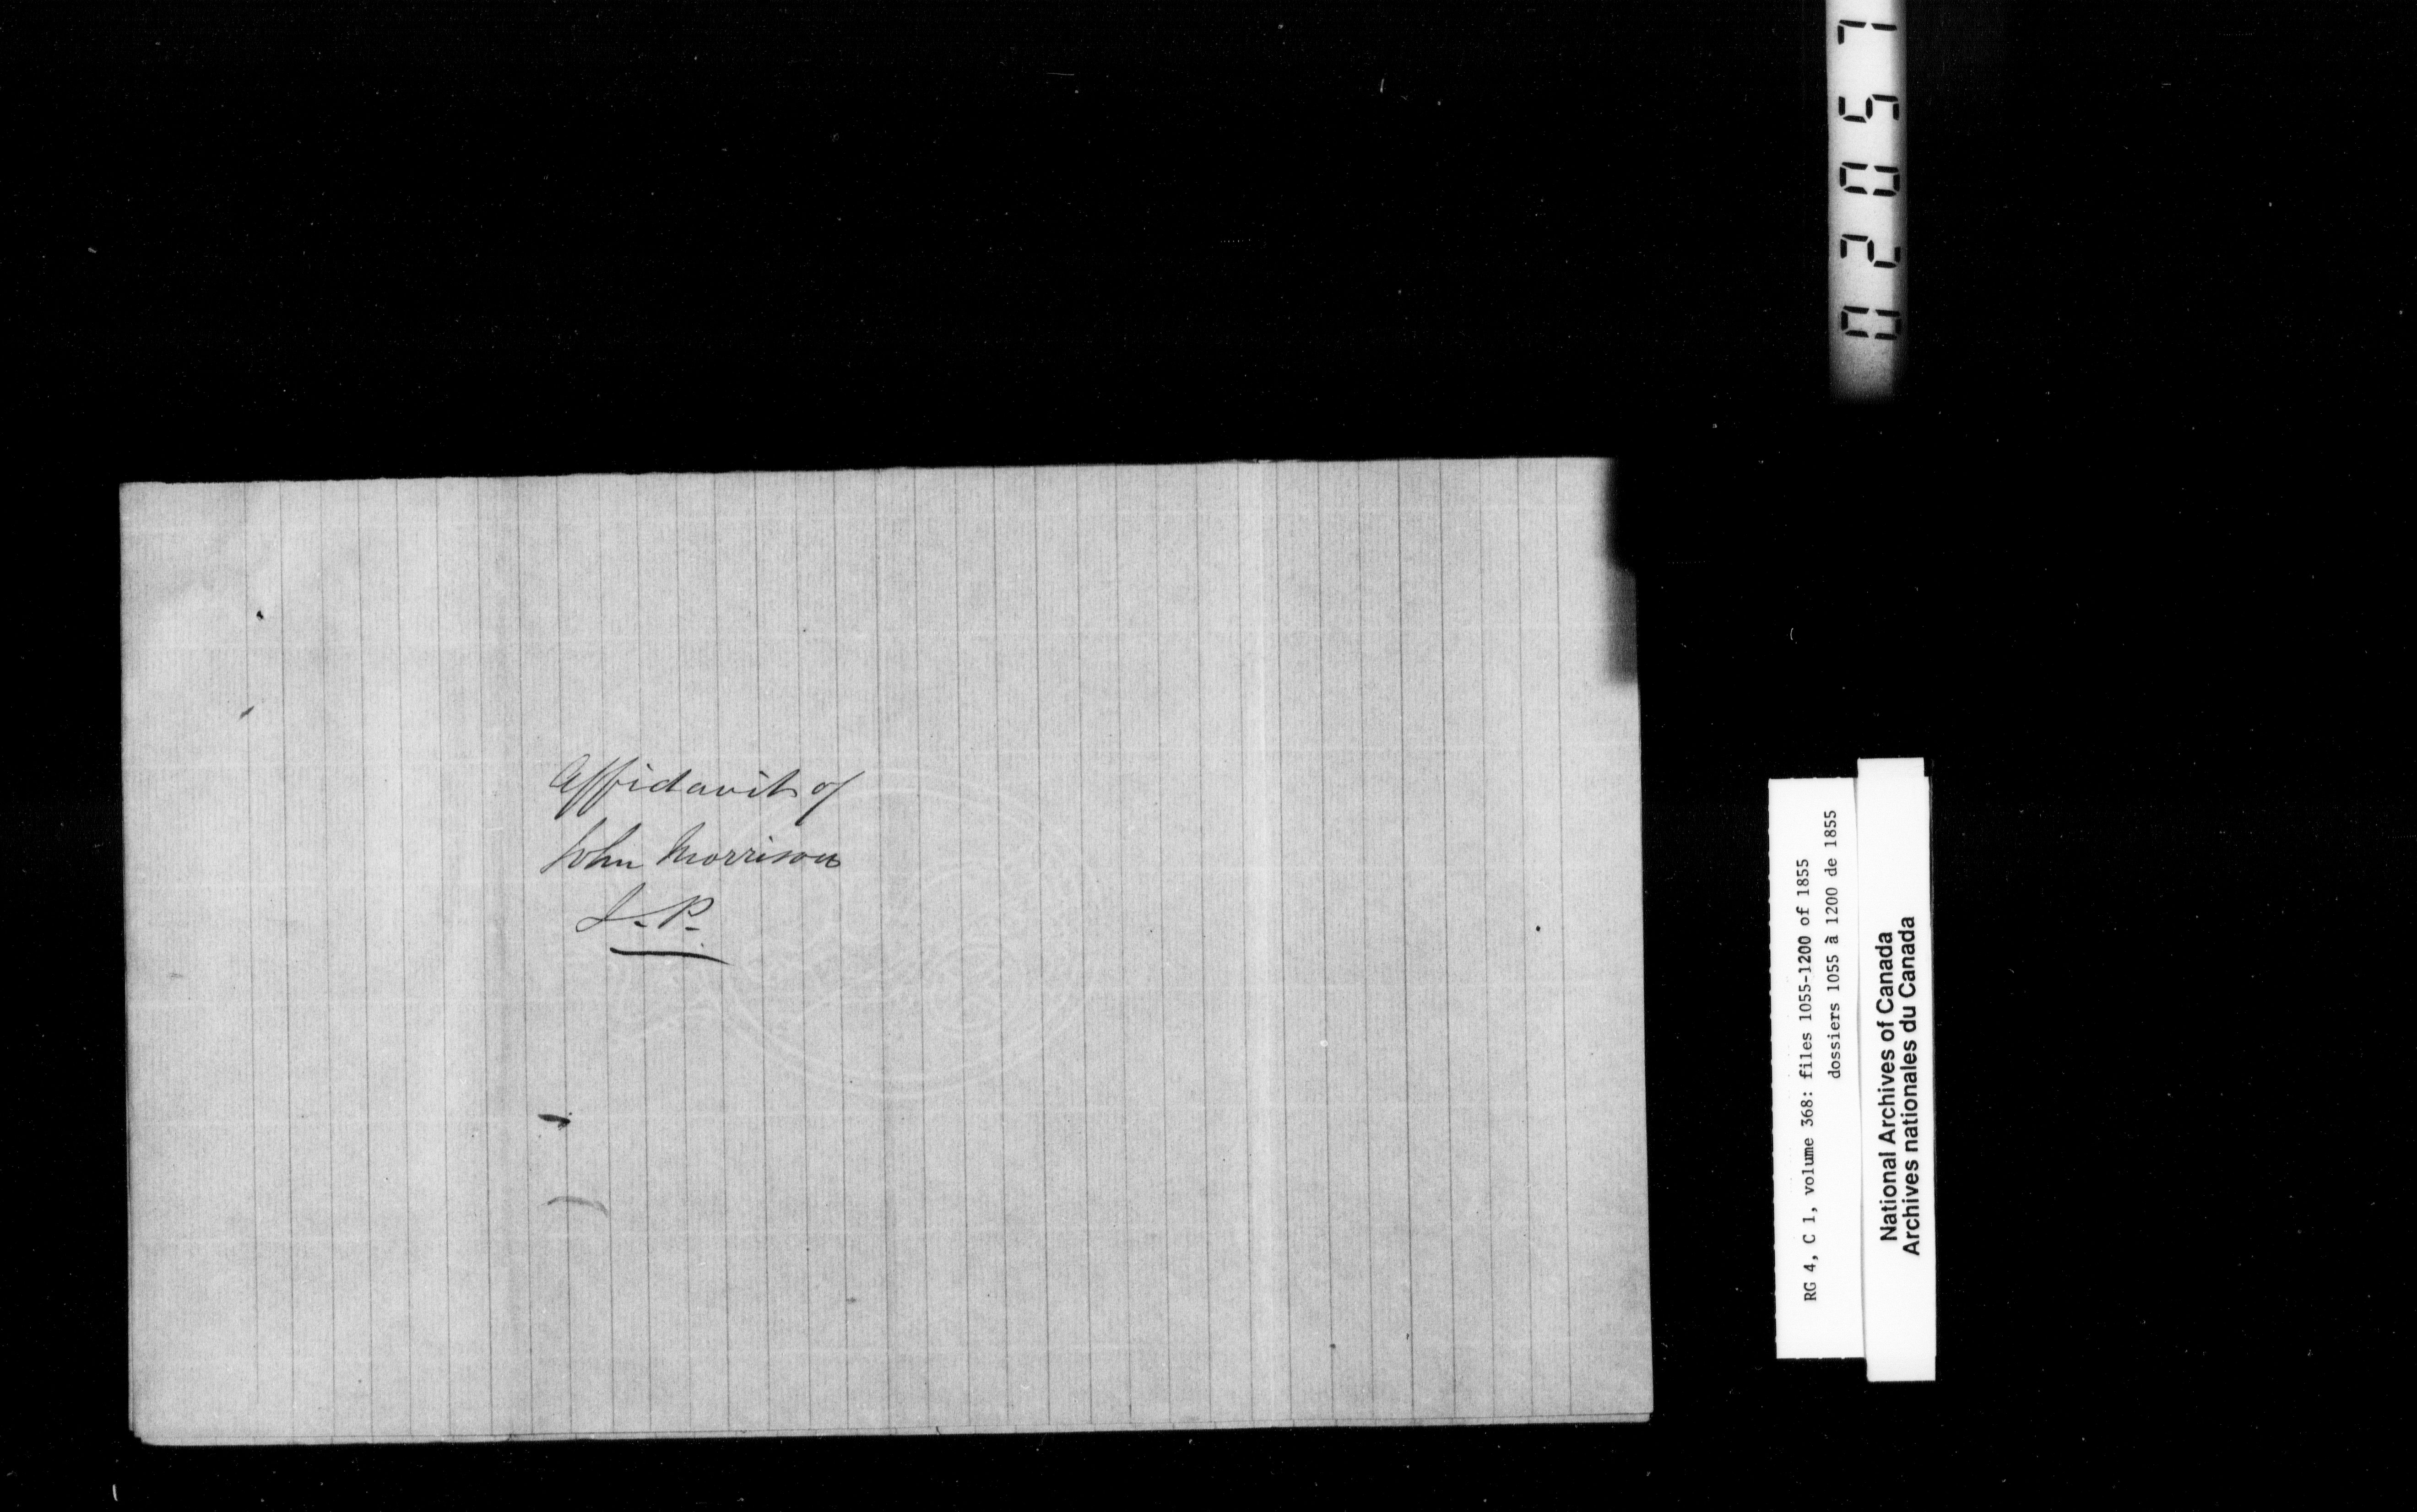 Affidavit of
John Morrison
J. P.
02057
RG 4, C 1, volume 368: files 1055-1200 of 1855
dossiers 1055 à 1200 de 1855
National Archives of Canada
Archives nationales du Canada